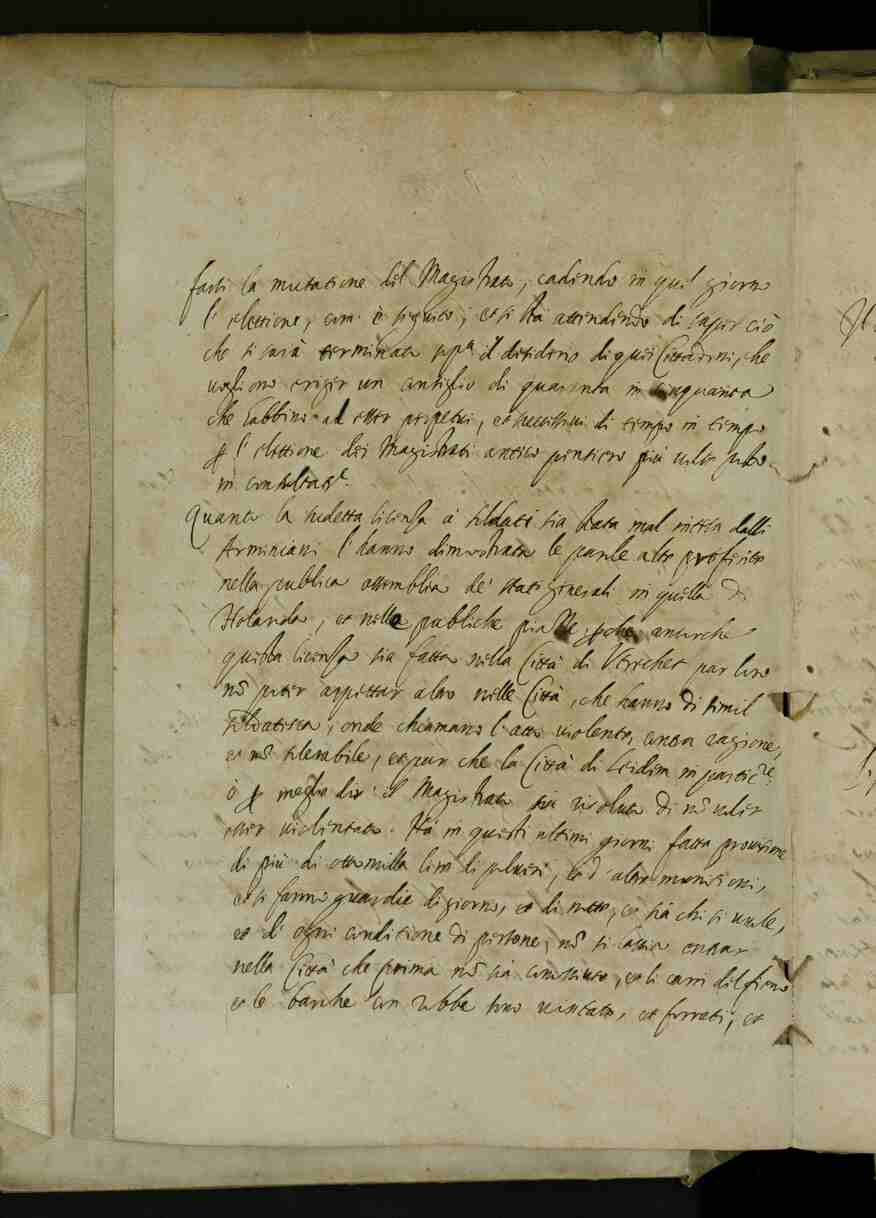 farsi la mutatione del Magistrato, cadendo in quel giorno
l'elettione, com'è seguito; et si stà attendendo di saper ciò
che si sarà terminato sopra il desiderio di quei Cittadini, che
vogliono eriger un consiglio di quaranta in cinquanta
che habbino ad esser perpetui, et successivi di tempo in tempo
per l'elettione dei Magistrati antico pensiero più volte
in consultat.e
Quanto la sudetta licenza a soldati sia stata mal intesa dalli
Arminiani l'hanno dimostrato le parole alte proferite
nella publica assemblea de' stati generali in quella di
Holanda, et nelle publiche piazze perche ancorche
questa licenza sia fatta nella Città di Vtrechet par loro
nõ poter aspettar altro nelle Città, che hanno di simil
soldatesca; onde chiamano l'atto violento, contra ragione,
et nõ tolerabile, et par che la Città di Leiden in partic.re
ò per meglio dir il Magistrato sia risoluto di nõ voler
esser violentato. Hà in questi ultimi giorni fatta provisione
di più di ottomilla lire di polvere, et d'altre munitioni,
et si fanno guardie di giorno, et di notte, et sia chi si vuole,
et d'ogni conditione di persone, nõ si lascia entrar
nella Città che prima nõ sia conosciuto, et li carri del fieno
et le barche con robbe sono visitate, et forati; et